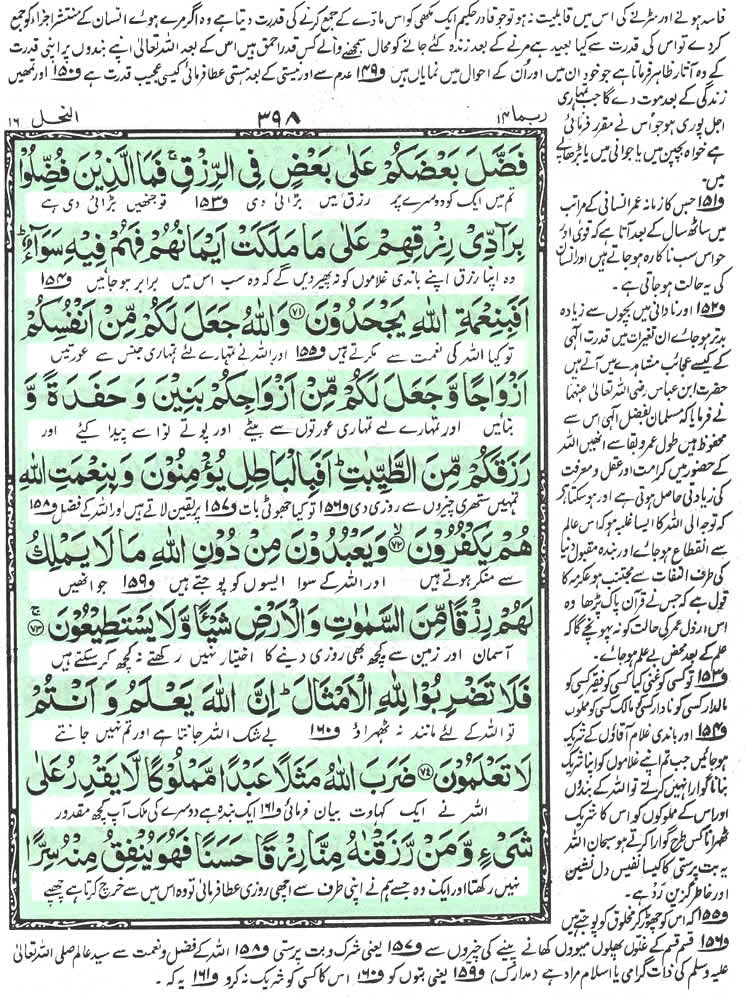 فاسد ہونے اور سڑنے کی اس میں قابلیت نہ ہو تو جو قادر حکیم ایک مکھی کو اس مادے کے جمع کرنے کی قدرت دیتا ہے وہ اگر مرے ہوئے انسان کے منتشر اجزا کو جمع
کردے تو اس کی قدرت سے کیا بعید ہے مرنے کے بعد زندہ کئے جانے کو محال سمجھنے والے کس قدر احمق ہیں اس کے بعد اللہ تعالٰی اپنے بندوں پر اپنی قدرت
کے وہ آثار ظاہر فرماتا ہے جو خود ان میں اور اُن کے احوال میں نمایاں ہیں و۱۴۹ عدم سے اور نیستی کے بعد ہستی عطا فرمائی کیسی عجیب قدرت ہے و۱۵۰ اور تمھیں
زندگی کے بعد موت دے گا جب تمہاری
اجل پوری ہو جو اُس نے مقرر فرمائی
ہے خواہ بچپن میں یا جوانی میں یا بڑھاپے
میں۔
و۱۵۱ جس کا زمانہ عمر انسانی کے مراتب
میں ساٹھ سال کے بعد آتا ہے کہ قویٰ اور
حواس سب ناکارہ ہوجاتے ہیں اور انسان
کی یہ حالت ہوجاتی ہے۔
و۱۵۲ اور نادانی میں بچوں سے زیادہ
بدتر ہوجائے ان تغیرات میں قدرت الٰہی
کے کیسے عجائب مشاہدے میں آتے ہیں
حضرت ابن عباس رضی اللہ تعالٰی عنہما
نے فرمایا کہ مسلمان بفضل الٰہی اس سے
محفوظ ہیں طول عمر و بقا سے انھیں اللہ
کے حضور میں کرامت اور عقل و معرفت
کی زیادتی حاصل ہوتی ہے اور ہوسکتا ہے
کہ توجہ الی اللہ کا ایسا غلبہ ہو کہ اس عالم
سے انقطاع ہوجائے اور بندہ مقبول دنیا
کی طرف التفات سے مجتنب ہو عکرمہ کا
قول ہے کہ جس نے قرآن پاک پڑھا وہ
اس ارذل عمر کی حالت کو نہ پہونچے گا کہ
علم کے بعد محض بے علم ہوجائے۔
و۱۵۳ تو کسی کو غنی کیا کسی کو فقیر کسی کو
مالدار کسی کو نادار کسی کو مالک کسی کو مملوک
و۱۵۴ اور باندی غلام آقاؤں کے شریک
ہوجائیں جب تم اپنے غلاموں کو اپنا شریک
بنانا گوارا نہیں کرتے تو اللہ کے بندوں
اور اس کے مملوکوں کو اس کا شریک
ٹھہرانا کس طرح گوارا کرتے ہو سبحان اللہ
یہ بت پرستی کا کیسا نفیس دل نشین
اور خاطر گزین رد ہے۔
و۱۵۵ کہ اس کو چھوڑ کر مخلوق کو پوجتے ہیں
ربما ۱۴
۳۹۸
النحل ۱۶
فَضَّلَ بَعْضَكُمْ عَلٰى بَعْضٍ فِى الرِّزْقِ ۚ فَمَا الَّذِيْنَ فُضِّلُوْا
تم میں ایک کو دوسرے پر رزق میں بڑائی دی و۱۵۳ تو جنھیں بڑائی دی ہے
بِرَآدِّىْ رِزْقِهِمْ عَلٰى مَا مَلَكَتْ اَيْمَانُهُمْ فَهُمْ فِيْهِ سَوَآءٌ ؕ
وہ اپنا رزق اپنے باندی غلاموں کو نہ پھیر دیں گے کہ وہ سب اس میں برابر ہوجائیں و۱۵۴
اَفَبِنِعْمَةِ اللّٰهِ يَجْحَدُوْنَ ﴿۷۱﴾ وَاللّٰهُ جَعَلَ لَكُمْ مِّنْ اَنْفُسِكُمْ
تو کیا اللہ کی نعمت سے مکرتے ہیں و۱۵۵ اور اللہ نے تمہارے لئے تمہاری جنس سے عورتیں
اَزْوَاجًا وَّجَعَلَ لَكُمْ مِّنْ اَزْوَاجِكُمْ بَنِيْنَ وَحَفَدَةً وَّ
بنائیں اور تمہارے لیے تمہاری عورتوں سے بیٹے اور پوتے نواسے پیدا کیئے اور
رَزَقَكُمْ مِّنَ الطَّيِّبٰتِ ؕ اَفَبِالْبَاطِلِ يُؤْمِنُوْنَ وَبِنِعْمَتِ اللّٰهِ
تمہیں ستھری چیزوں سے روزی دی و۱۵۶ تو کیا جھوٹی بات و۱۵۷ پر یقین لاتے ہیں اور اللہ کے فضل و۱۵۸
هُمْ يَكْفُرُوْنَ ﴿۷۲﴾ۙ وَيَعْبُدُوْنَ مِنْ دُوْنِ اللّٰهِ مَا لَا يَمْلِكُ
سے منکر ہوتے ہیں اور اللہ کے سوا ایسوں کو پوجتے ہیں و۱۵۹ جو انھیں
لَهُمْ رِزْقًا مِّنَ السَّمٰوٰتِ وَالْاَرْضِ شَيْئًا وَّلَا يَسْتَطِيْعُوْنَ ﴿۷۳﴾ۚ
آسمان اور زمین سے کچھ بھی روزی دینے کا اختیار نہیں رکھتے نہ کچھ کرسکتے ہیں
فَلَا تَضْرِبُوْا لِلّٰهِ الْاَمْثَالَ ؕ اِنَّ اللّٰهَ يَعْلَمُ وَاَنْتُمْ
تو اللہ کے لئے مانند نہ ٹھہراؤ و۱۶۰ بے شک اللہ جانتا ہے اور تم نہیں جانتے
لَا تَعْلَمُوْنَ ﴿۷۴﴾ ضَرَبَ اللّٰهُ مَثَلًا عَبْدًا مَّمْلُوْكًا لَّا يَقْدِرُ عَلٰى
اللہ نے ایک کہاوت بیان فرمائی و۱۶۱ ایک بندہ ہے دوسرے کی ملک آپ کچھ مقدور
شَىْءٍ وَّمَنْ رَّزَقْنٰهُ مِنَّا رِزْقًا حَسَنًا فَهُوَ يُنْفِقُ مِنْهُ سِرًّا
نہیں رکھتا اور ایک وہ جسے ہم نے اپنی طرف سے اچھی روزی عطا فرمائی تو وہ اس میں سے خرچ کرتا ہے چھپے
و۱۵۶ قسم قسم کے غلوں پھلوں میووں کھانے پینے کی چیزوں سے و۱۵۷ یعنی شرک و بت پرستی و۱۵۸ اللہ کے فضل و نعمت سے سید عالم صلی اللہ تعالٰی
علیہ وسلم کی ذات گرامی یا اسلام مراد ہے (مدارک) و۱۵۹ یعنی بتوں کو و۱۶۰ اس کا کسی کو شریک نہ کرو و۱۶۱ یہ کہ۔